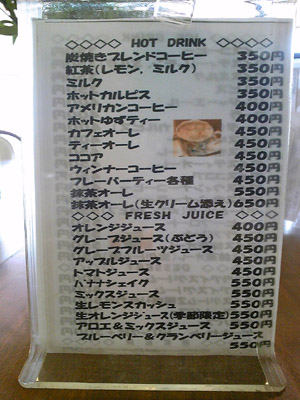 ◇◇◇◇ HOT DRINK ◇◇◇◇
炭焼きブレンドコーヒー 350円
紅茶(レモン,ミルク) 350円
ミルク 350円
ホットカルピス 350円
アメリカンコーヒー 400円
ホットゆずティー 400円
カフェオーレ 450円
ティーオーレ 450円
ココア 450円
ウィンナーコーヒー 450円
フレーバーティー各種 450円
抹茶オーレ 550円
抹茶オーレ(生クリーム添え) 650円
◇◇◇ FRESH JUICE ◇◇◇
オレンジジュース 400円
グレープジュース(ぶどう) 450円
グレープフルーツジュース 450円
アップルジュース 450円
トマトジュース 450円
バナナシェイク 550円
ミックスジュース 550円
生レモンスカッシュ 550円
生オレンジジュース(季節限定) 550円
アロエ&ミックスジュース 550円
ブルーベリー&クランベリージュース
550円